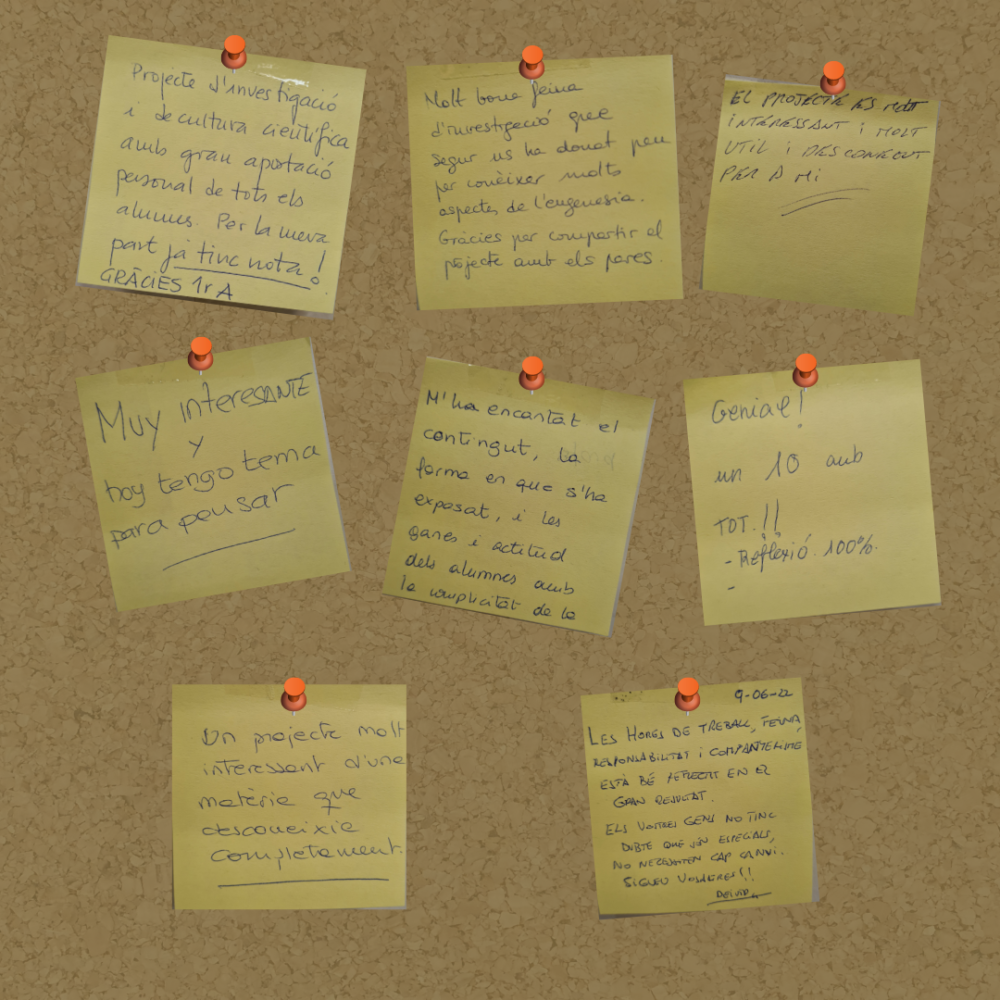 Projecte d'investigació
i de cultura científica
amb gran aportació
personal de tots els
alumnes. Per la meva
part ja tinc nota!
GRÀCIES 1r A
Molt bona feina
d'investigació que
segur us ha donat peu
per conèixer molts
aspectes de l'eugenesia.
Gràcies per compartir el
projecte amb els pares.
EL PROJECTE ÉS MOLT
INTERESSANT i MOLT
UTIL i DESCONEGUT
PER A MI
Muy interesANTE
y
hoy tengo tema
para pensar
M'ha encantat el
contingut, la
forma en que s'ha
exposat, i les
ganes i actitud
dels alumnes amb
la complicitat de la
Genial!
un 10 amb
TOT.!!
- Reflexió 100%.
-
Un projecte molt
interessant d'una
matèria que
desconeixia
completament.
9-06-22
LES HORES DE TREBALL, FEINA
RESPONSABILITAT i COMPANYERISME
ESTÀ BÉ REFLECTIT EN EL
GRAN RESULTAT.
ELS VOSTRES GENS NO TINC
DUBTE QUE SÓN ESPECIALS,
NO NECESSITEN CAP CANVI.
SIGUEU VOSALTRES!!